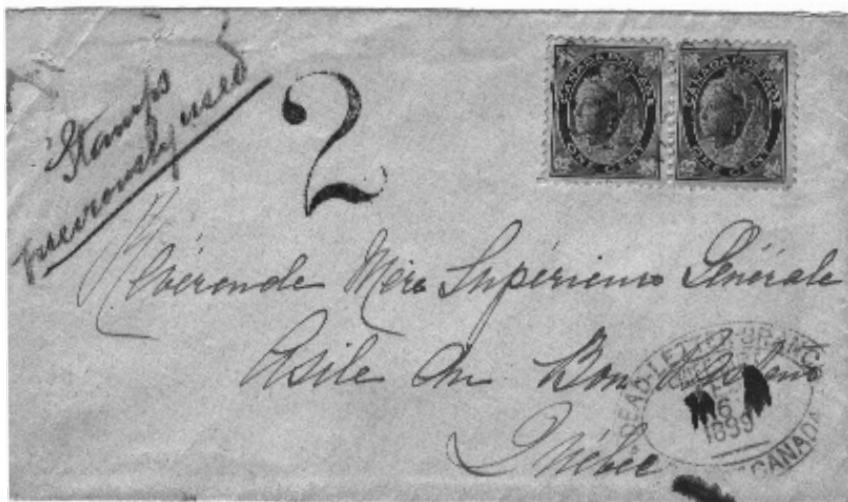 Stamps
previously used
2
CANADA POSTAGE
ONE CENT
CANADA POSTAGE
ONE CENT
Révérende Mère Supérieure Générale
Asile du Bon Pasteur
Québec
DEAD LETTER BRANCH
6
1899
CANADA